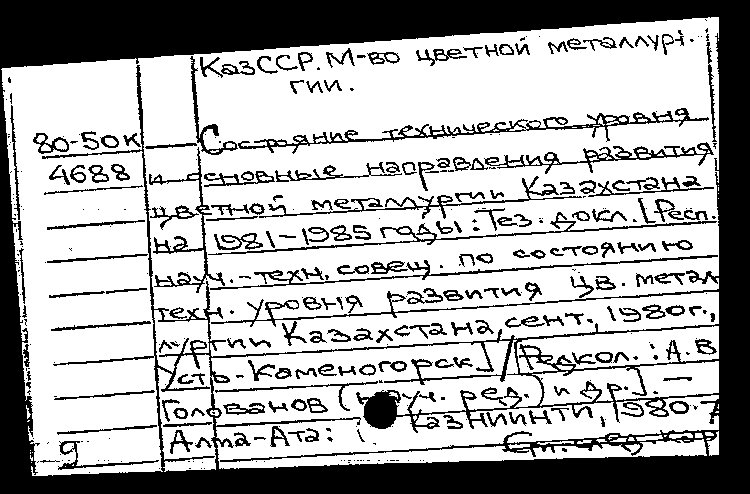 КазССР. М-во цветной металлур-
гии.
80-50к Состояние технического уровня
4688 и основные направления развития
цветной металлургии Казахстана
на 1981-1985 годы: Тез. докл. [Респ.
науч.-техн. совещ. по состоянию
техн. уровня развития цв. метал
лургии Казахстана, сент., 1980г.,
Усть-Каменогорск] / [Редкол.: А.В
Голованов (науч. ред.) и др.]. —
Алма-Ата: КазНИИНТИ, 1980.
9 См. след. кар